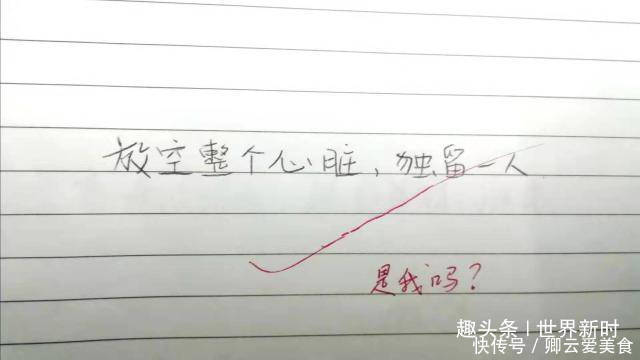 放空整个心脏，独留一人
是我吗？
趣头条 | 世界新时
快传号 / 卿云爱美食